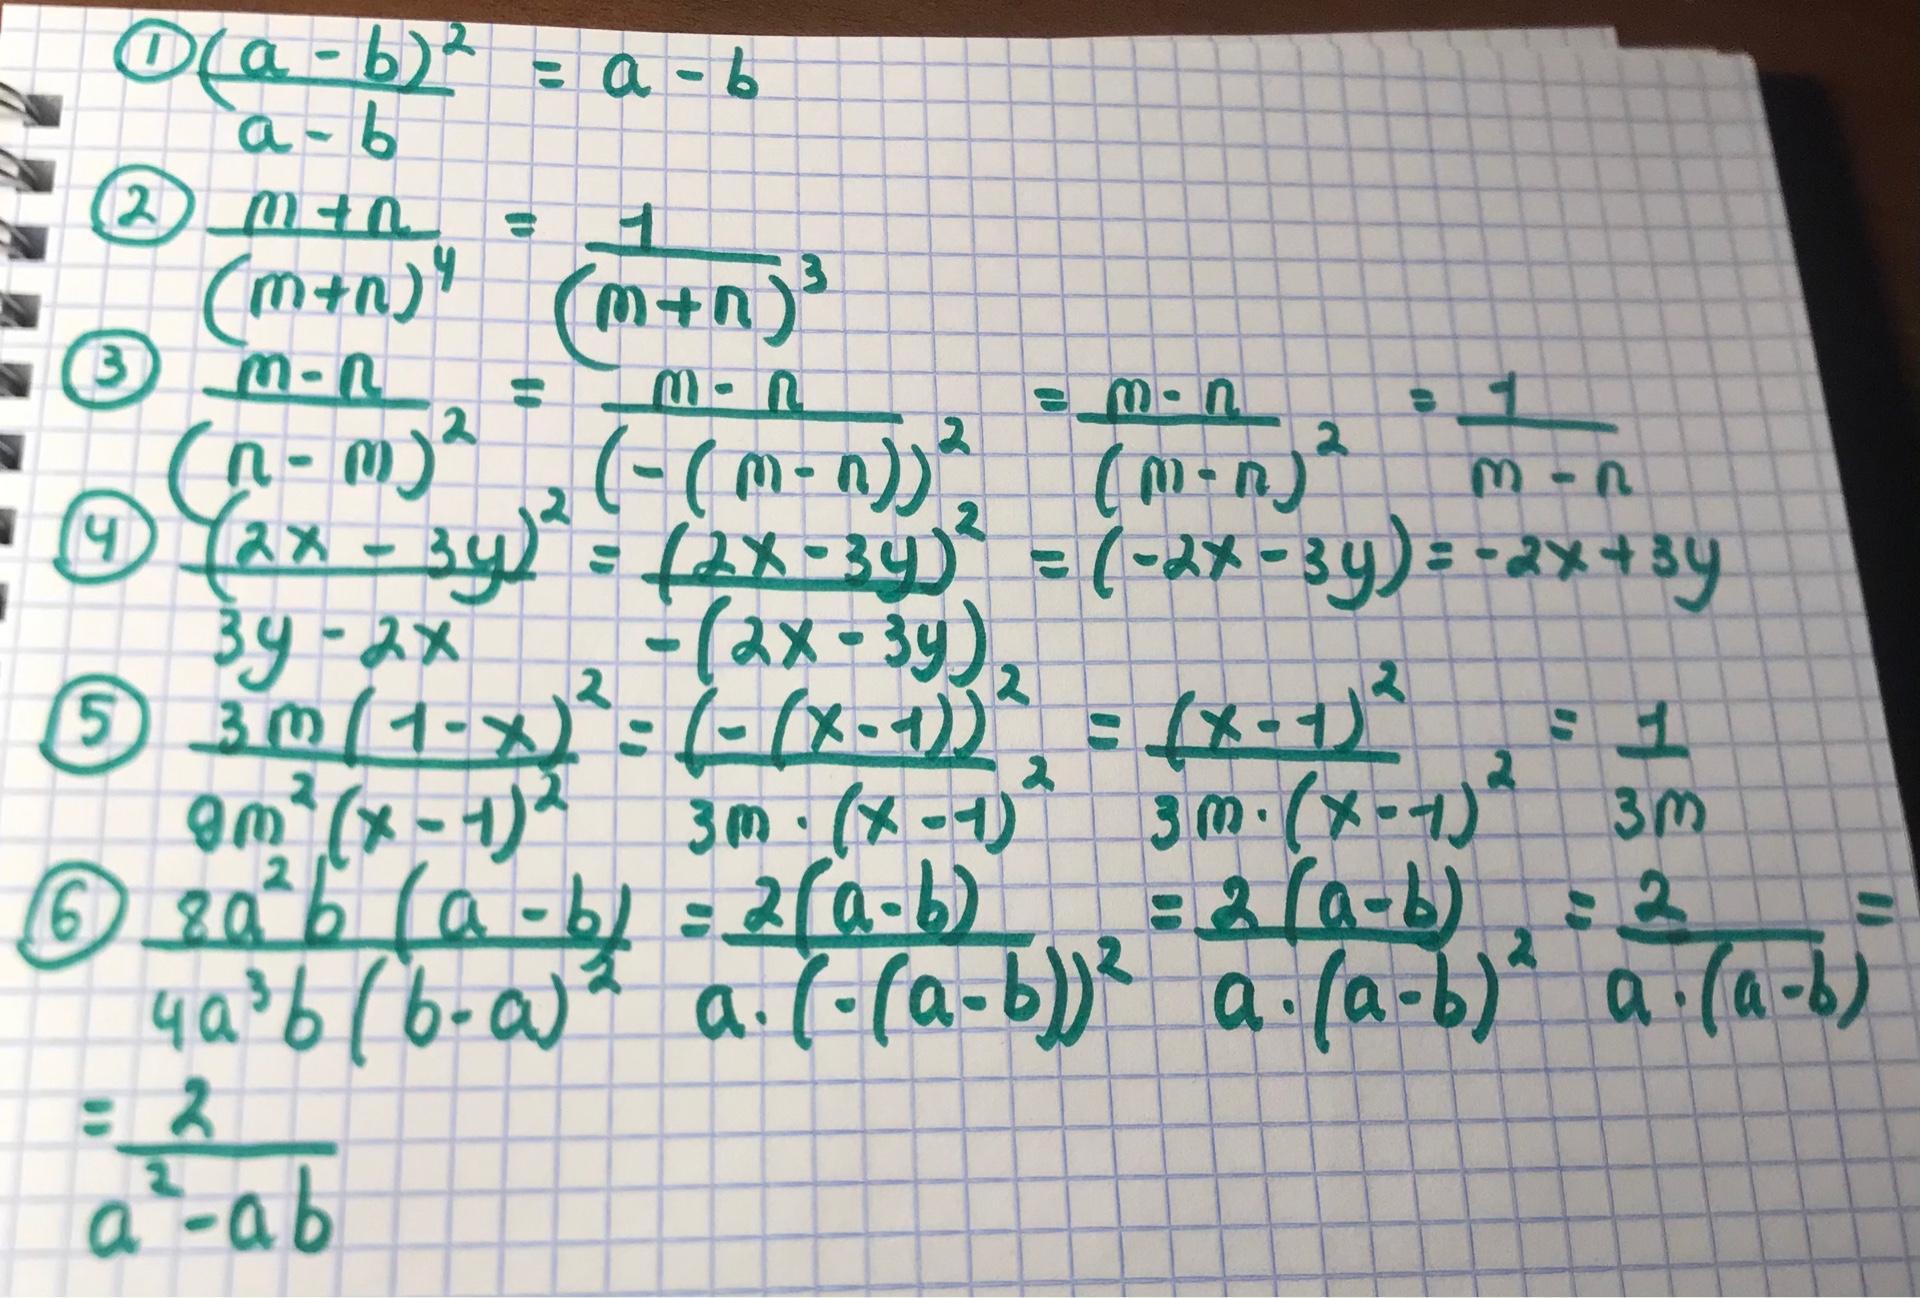 ① (a - b)² / a - b = a - b
② m + n / (m+n)⁴ = 1 / (m+n)³
③ m - n / (n - m)² = m - n / (-(m-n))² = m - n / (m-n)² = 1 / m - n
④ (2x - 3y)² / 3y - 2x = (2x - 3y)² / -(2x - 3y) = (-2x - 3y) = -2x + 3y
⑤ 3m(1-x)² / 9m²(x-1)² = (-(x-1))² / 3m · (x-1)² = (x-1)² / 3m · (x-1)² = 1 / 3m
⑥ 8a²b (a - b) / 4a³b (b-a)² = 2(a-b) / a · (-(a-b))² = 2(a-b) / a · (a-b)² = 2 / a · (a-b) =
= 2 / a² - ab